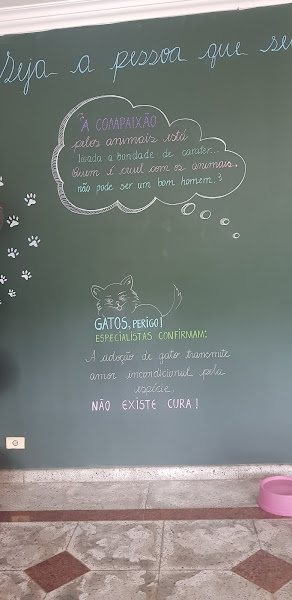 Seja a pessoa que se
"A COMPAIXÃO
pelos animais está
ligada a bondade de caráter...
Quem é cruel com os animais,
não pode ser um bom homem."
GATOS, PERIGO!
ESPECIALISTAS CONFIRMAM:
A adoção de gato transmite
amor incondicional pela
espécie.
NÃO EXISTE CURA!